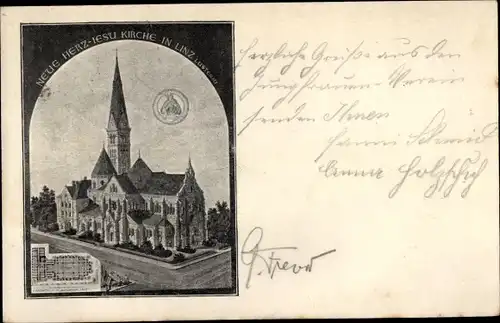 NEUE HERZ-JESU KIRCHE IN LINZ
Herzliche Grüße aus den
Jungfrauen-Verein
senden Ihnen
Fanni Schmid
Anna Holzschuh